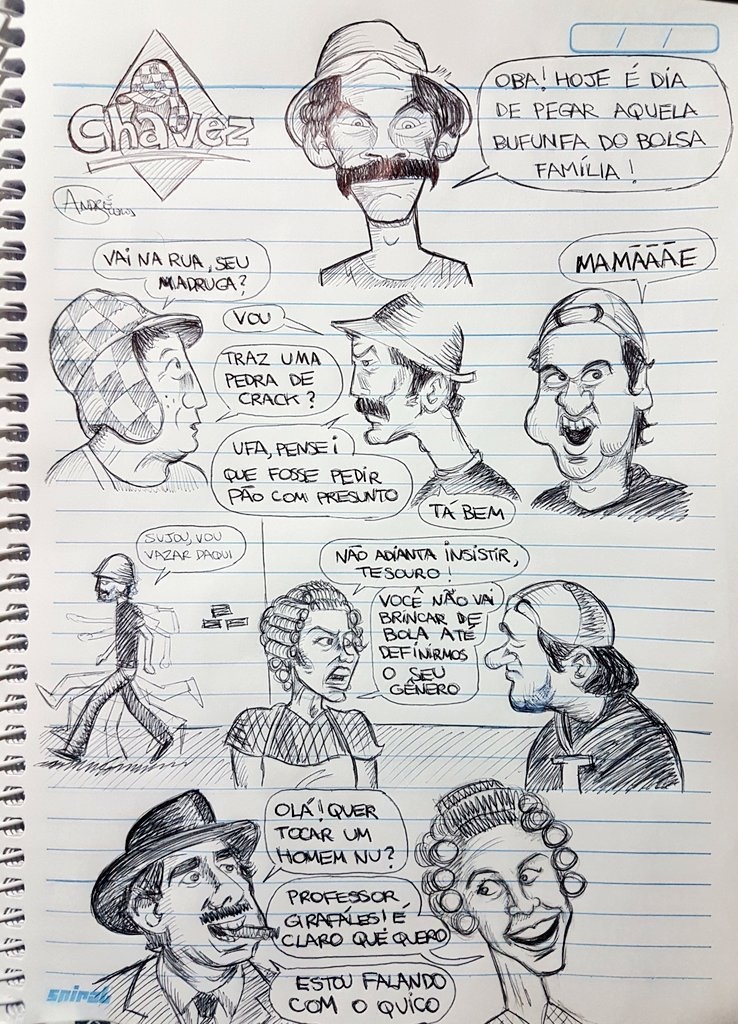 Chavez
OBA! HOJE É DIA
DE PEGAR AQUELA
BUFUNFA DO BOLSA
FAMÍLIA!
ANDRÉ
VAI NA RUA, SEU
MADRUGA?
VOU
TRAZ UMA
PEDRA DE
CRACK?
UFA, PENSEI
QUE FOSSE PEDIR
PÃO COM PRESUNTO
TÁ BEM
MAMÃÃÃE
SUJOU, VOU
VAZAR DAQUI
NÃO ADIANTA INSISTIR,
TESOURO!
VOCÊ NÃO VAI
BRINCAR DE
BOLA ATÉ
DEFINIRMOS
O SEU
GÊNERO
OLÁ! QUER
TOCAR UM
HOMEM NU?
PROFESSOR
GIRAFALES! É
CLARO QUE QUERO
ESTOU FALANDO
COM O QUICO
spiral